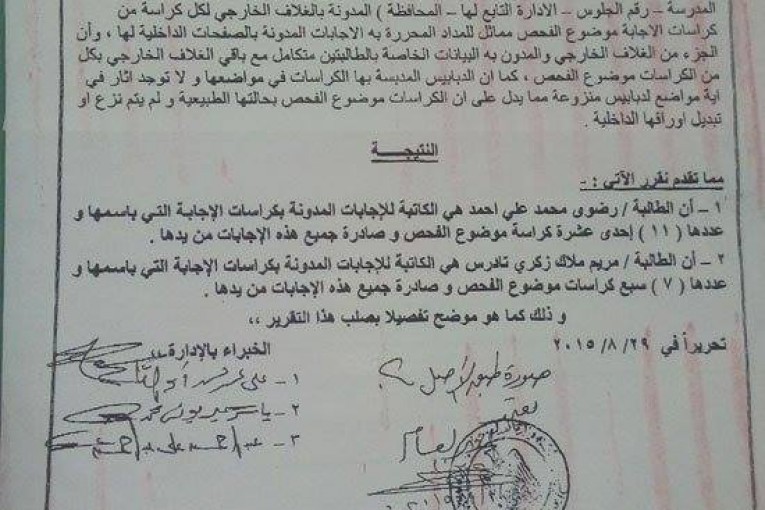 المدرسة – رقم الجلوس – الادارة التابع لها – المحافظة ) المدونة بالغلاف الخارجي لكل كراسة من
كراسات الاجابة موضوع الفحص مماثل للمداد المحررة به الاجابات المدونة بالصفحات الداخلية لها ، وأن
الجزء من الغلاف الخارجي والمدون به البيانات الخاصة بالطالبتين متكامل مع باقي الغلاف الخارجي بكل
من الكراسات موضوع الفحص ، كما ان الدبابيس المدبسة بها الكراسات في مواضعها و لا توجد اثار في
اية مواضع لدبابيس منزوعة مما يدل على ان الكراسات موضوع الفحص بحالتها الطبيعية و لم يتم نزع او
تبديل اوراقها الداخلية .
النتيجـــة
مما تقدم نقرر الآتي : -
١ – أن الطالبة / رضوى محمد علي احمد هي الكاتبة للإجابات المدونة بكراسات الإجابة التي باسمها و
عددها ( ١١ ) إحدى عشرة كراسة موضوع الفحص و صادرة جميع هذه الإجابات من يدها .
٢ – أن الطالبة / مريم ملاك زكري تادرس هي الكاتبة للإجابات المدونة بكراسات الإجابة التي باسمها و
عددها ( ٧ ) سبع كراسات موضوع الفحص و صادرة جميع هذه الإجابات من يدها .
و ذلك كما هو موضح تفصيلا بصلب هذا التقرير ،،
تحريراً في ٢٩ /٨ /٢٠١٥
الخبراء بالإدارة ،،
صورة طبق الأصل
١ – على
٢ – ياسر
٣ –